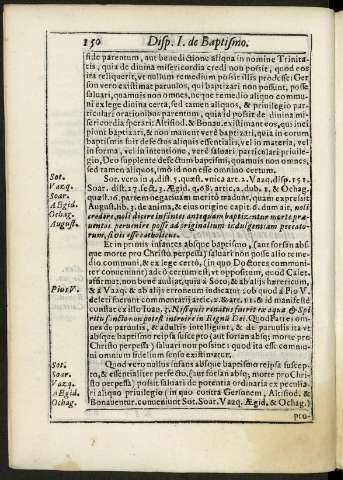 150 Disp. I. de Baptismo.
fide parentum, aut benedictione aliqua in nomine Trinita-
tis, quia de divina misericordia credi non possit, quod cos
ita reliquerit, vt nullum remedium possit illis prodesse: Ger
son vero existimat parvulos, qui baptizari non possunt, posse
saluari, quamuis non omnes, neque remedio aliquo commu-
ni ex lege divina certa, sed tamen aliquos, & privilegio par-
ticulari orationibus parentum, quia id possit de divina mi-
sericordia sperari: Altisiod. & Bonau. existimant eos, qui inci
piunt baptizari, & non manent verè baptizati, quia in eorum
baptismi fuit defectus aliquis essentialis, vel in materia, vel in
forma, vel in intentione, verè saluari particulari privile-
gio, Deo supplente defectum baptismi, quamuis non omnes,
sed tamen aliquos, imò id non esse omnino certum.
Sot. Sot. vero in 4. dist. 5. quæst. vnica art. 2. Vazq. disp. 151.
Vazq. Soar. dist. 27. sect. 3. Ægid. q. 68. artic. 2. dub. 1. & Ochag.
Soar. quæst. 6. partem negativam meritò tradunt, quam expresit
AEgid. August. lib. 3. de anima, & eius origine capit. 9. dum ait, noli
Ochag. credere, noli dicere infantes antequam baptizentur morte præ-
August. uentos peruenire posse ad originalium indulgentiam peccato-
rum, si vis esse catholicus.
Et in primis infantes absque baptismo, (aut forsan abs-
que morte pro Christo perpessa) saluari non posse alio reme-
dio communi, & ex lege certò, (in quo Doctores communi-
ter conveniunt) adeò certum est, vt oppositum, quod Caiet.
affirmat, non bene audiat, quia à Soto, & ab alijs hæreticum,
& à Vazq. & ab alijs erroneum iudicatur; ob quod à Pio V.
Pius V. deleri fuerunt commentarij artic. 2. & art. 11. & id manifestè
constat ex illo Ioan. 3. Nisi quis renatus fuerit ex aqua & Spi-
ritu sancto non potest introire in Regnũ Dei. Quod Patres om-
nes de parvulis, & adultis intelligunt, & de parvulis ita vt
absque baptismi reipsa suscepto (aut forian absq; morte pro
Christo perpessa) saluari non possint: quod ita esse commu-
ni omnium fidelium sensu existimatur.
Sot. Quod vero nullus infans absque baptismo reipsa suscep-
Soar. to, & essentialiter perfecto, (aut forsan absq; morte pro Chri-
Vazq. sto perpessa) possit saluari de potentia ordinaria ex peculia-
AEgid. ri aliquo privilegio (in quo contra Gersonem, Altisiod. &
Ochag. Bonauentur. conveniunt Sot. Soar. Vazq. Ægid. & Ochag.)
pro-